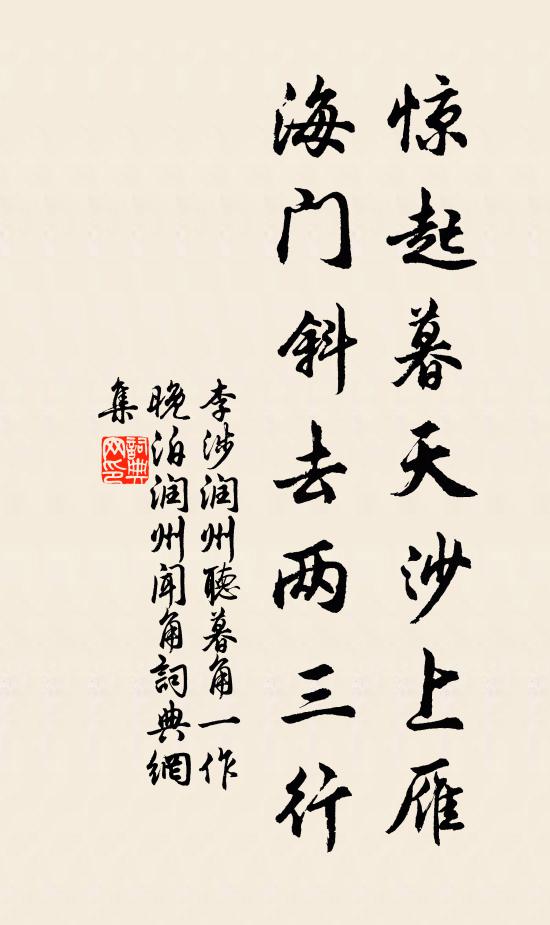 惊起暮天沙上雁
海门斜去两三行
李涉润州聽暮角一作
晚泊润州闻角詞典網
集
詞典網印